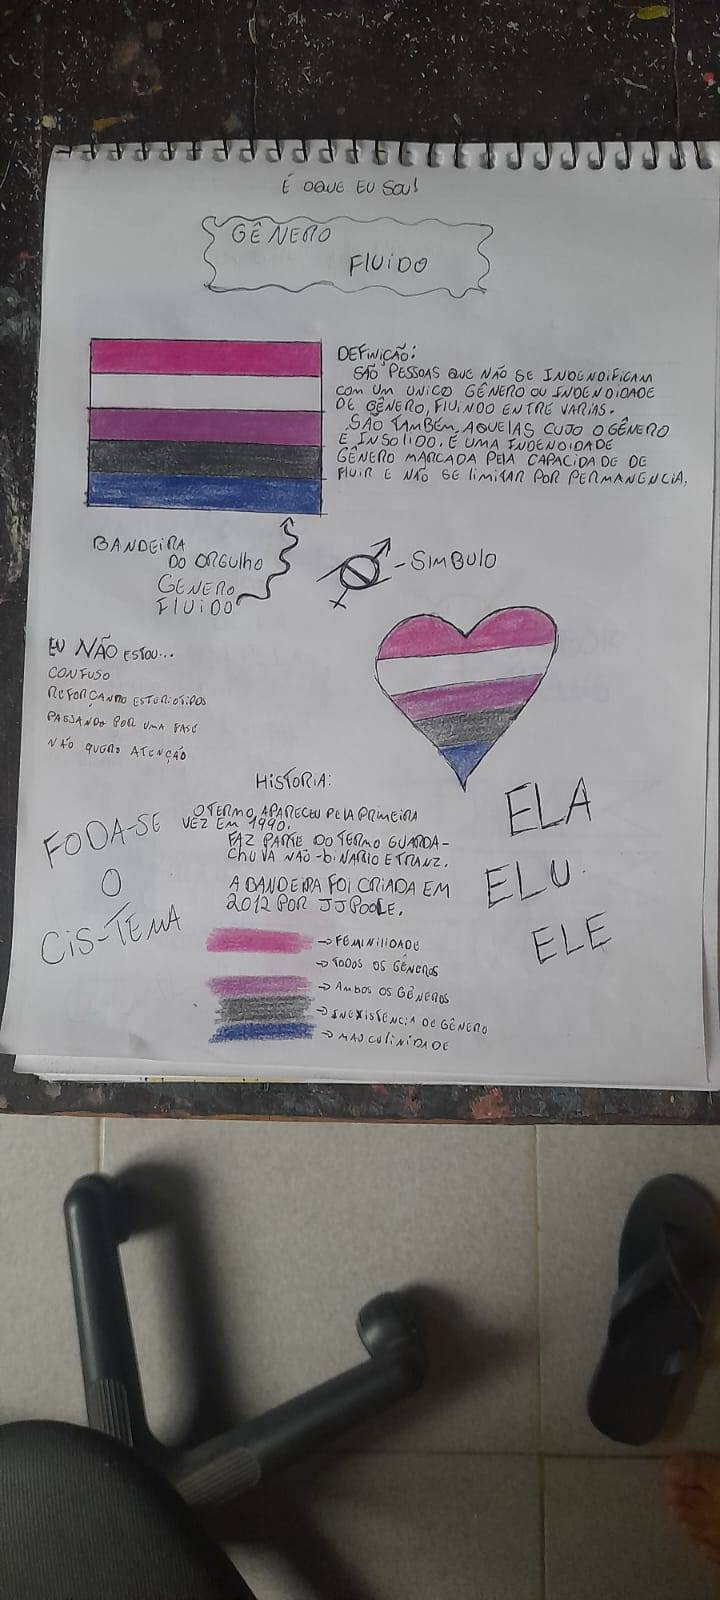 É OQUE EU SOU!
GÊNERO
FLUIDO
DEFINIÇÃO:
SÃO PESSOAS QUE NÃO SE INDENDIFICAM
COM UM UNICO GÊNERO OU INDENDIDADE
DE GÊNERO, FLUINDO ENTRE VARIAS.
SÃO TAMBÉM AQUELAS CUJO O GÊNERO
É INSOLIDO. É UMA INDENDIDADE
GÊNERO MARCADA PELA CAPACIDADE DE
FLUIR E NÃO SE LIMITAR POR PERMANENCIA.
BANDEIRA
DO ORGULHO
GENERO
FLUIDO
- SIMBULO
EU NÃO ESTOU...
CONFUSO
REFORÇANDO ESTERIOTIPOS
PASSANDO POR UMA FASE
NÃO QUERO ATENÇÃO
HISTORIA:
O TERMO APARECEU PELA PRIMEIRA
VEZ EM 1990.
FAZ PARTE DO TERMO GUARDA-
CHUVA NÃO-BINARIO E TRANZ.
A BANDEIRA FOI CRIADA EM
2012 POR JJ POOLE.
FODA-SE
O
CIS-TEMA
ELA
ELU
ELE
→ FEMINILIDADE
→ TODOS OS GÊNEROS
→ AMBOS OS GÊNEROS
→ INEXISTENCIA DE GÊNERO
→ MASCULINIDADE